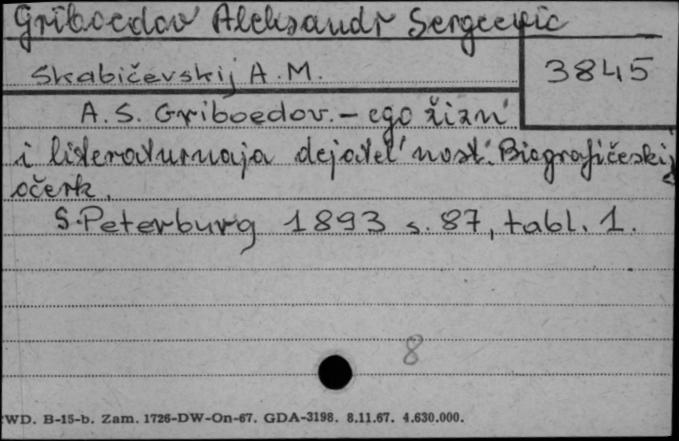 Griboedov Aleksandr Sergeevic
Skabičevskij A.M.
3845
A.S. Griboedov. - ego žizn'
i literaturnaja dejatel'nost'. Biografičeskij
očerk.
S. Peterburg 1893 s. 87, tabl. 1.
8
WD. B-15-b. Zam. 1726-DW-On-67. GDA-3198. 8.11.67. 4.630.000.